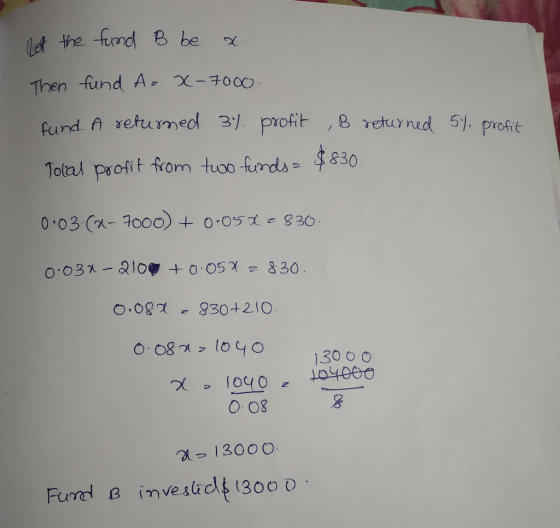 Let the fund B be x
Then fund A = x-7000.
fund A returned 3% profit, B returned 5% profit
Total profit from two funds = $830.
0.03(x-7000) + 0.05x = 830.
0.03x - 210 + 0.05x = 830.
0.08x = 830+210.
0.08x = 1040
x = 1040/0.08 = 104000/8 13000
x = 13000.
Fund B invested $13000.